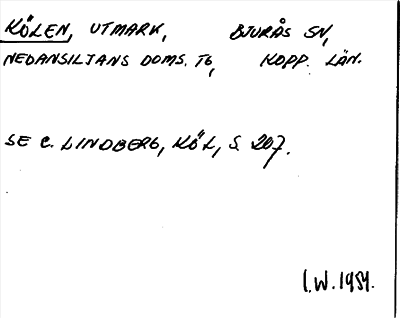 KÖLEN, UTMARK, BJURÅS SN,
NEDANSILJANS DOMS. TG, KOPP. LÄN.
SE C. LINDBERG, KÖL, S. 207.
I.W. 1954.